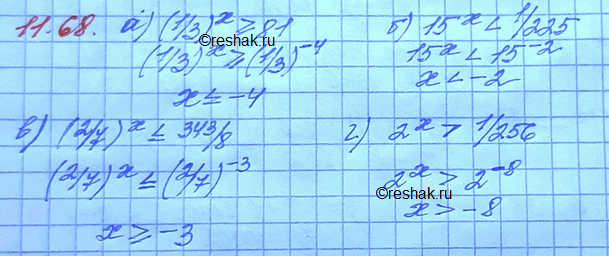 11.68. а) (1/3)^x ≥ 81 б) 15^x < 1/225
©reshak.ru
(1/3)^x ≥ (1/3)^-4 15^x < 15^-2
x ≤ -4 x < -2
в) (2/7)^x ≤ 343/8 г) 2^x > 1/256
(2/7)^x ≤ (2/7)^-3 2^x > 2^-8
©reshak.ru
x ≥ -3 x > -8